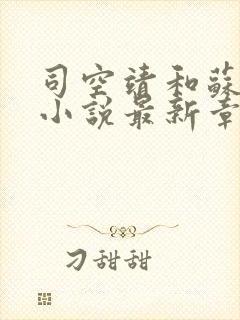 司空靖和蘇
小說最新章
刁甜甜